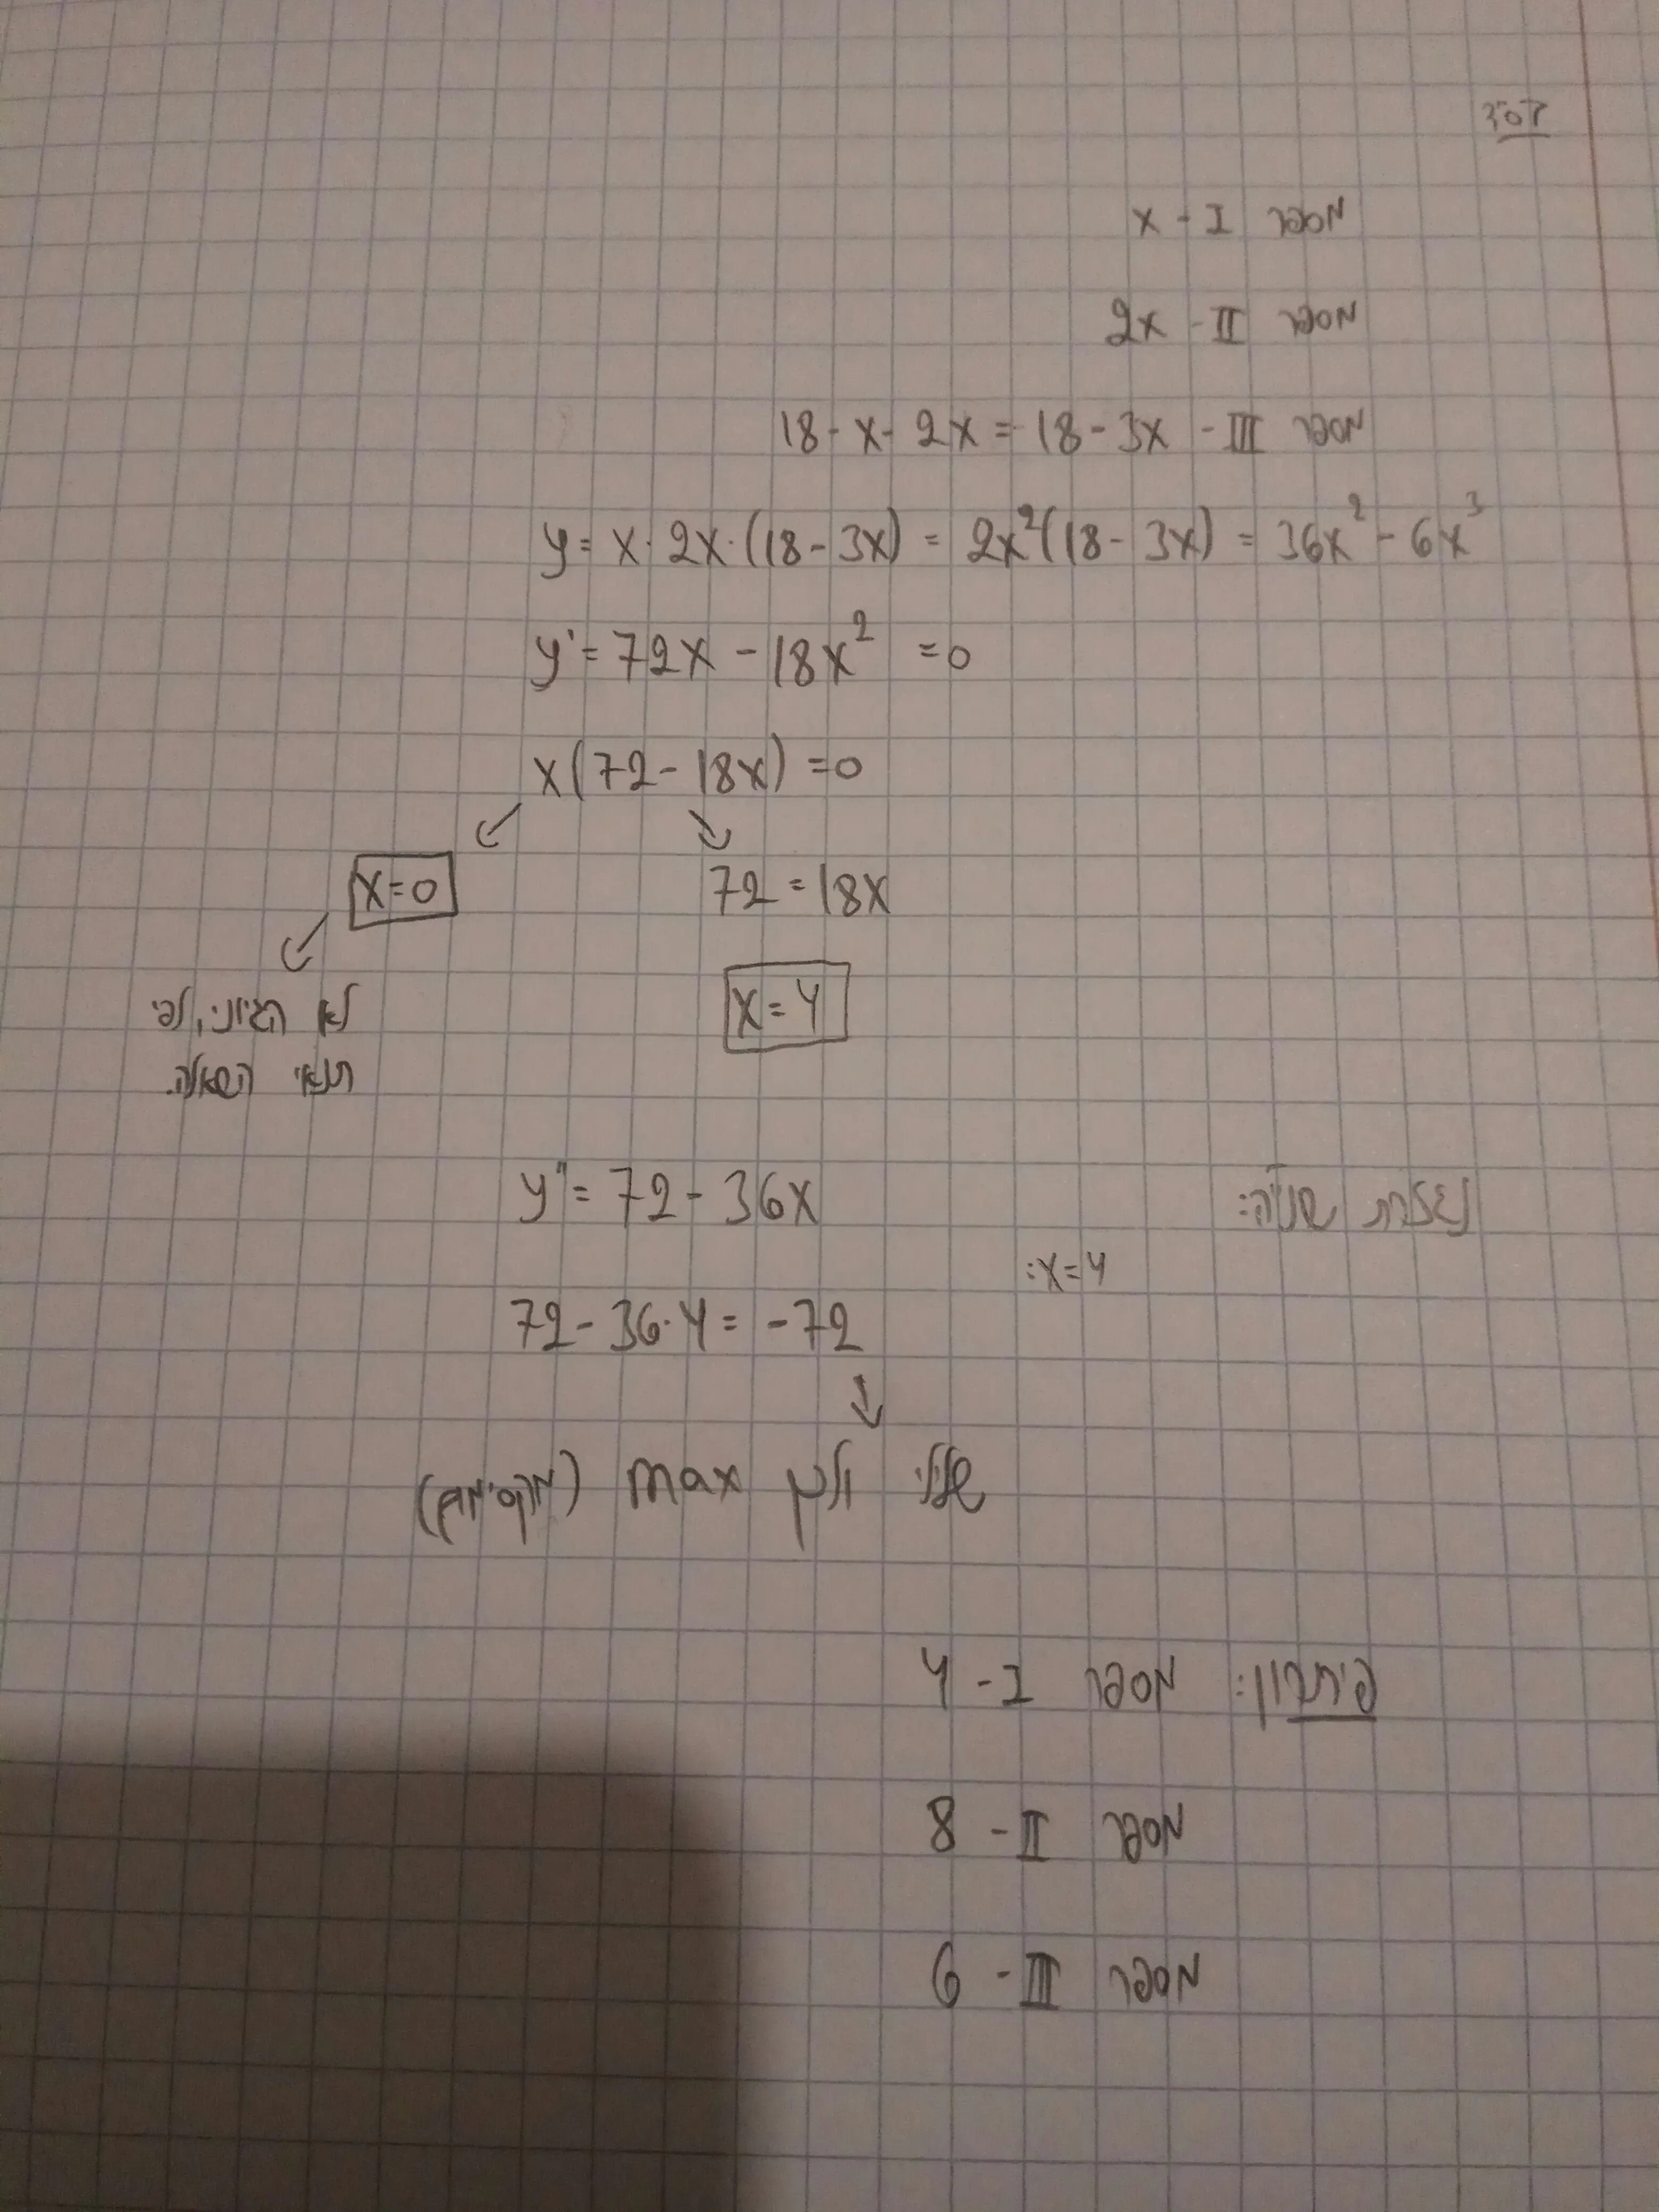 מספר I - x
מספר II - 2x
מספר III - 18-x-2x=18-3x
y=x·2x·(18-3x)=2x²(18-3x)=36x²-6x³
y'=72x-18x²=0
x(72-18x)=0
x=0
72=18x
x=4
לא הגיוני, לפי
תנאי השאלה.
נגזרת שנייה: y''=72-36x
x=4:
72-36·4=-72
שלילי ולכן max (מקסימום)
פיתרון: מספר I - 4
מספר II - 8
מספר III - 6